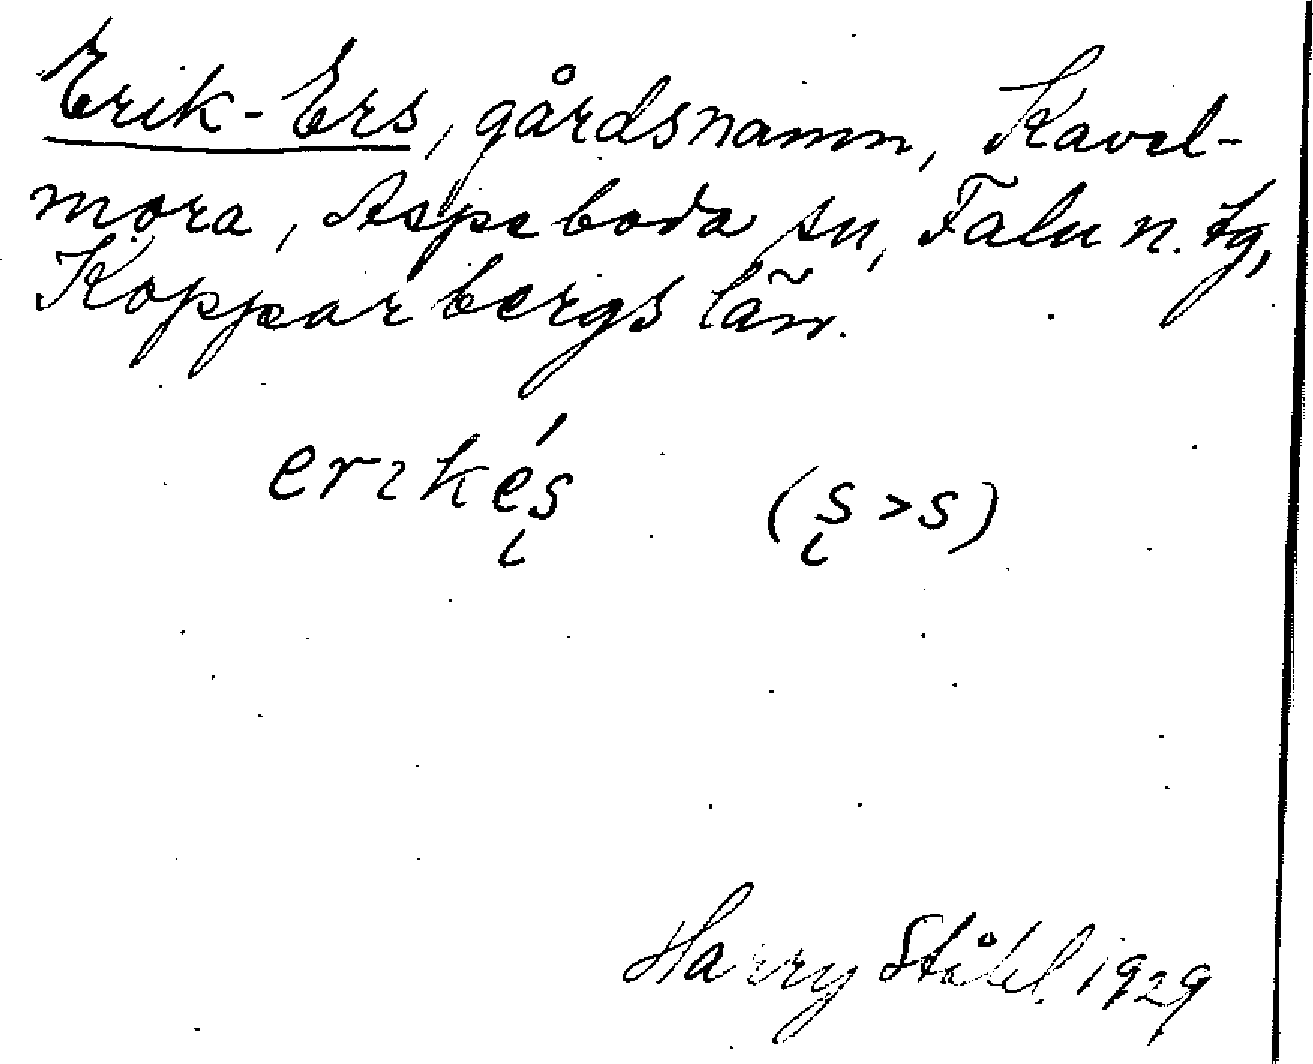 Erik-Ers, gårdsnamn, Kavel-
mora, Aspeboda sn, Falu n. tg,
Kopparbergs län.
erıkés̨ (s̨ > s)
Harry Ståhl. 1929